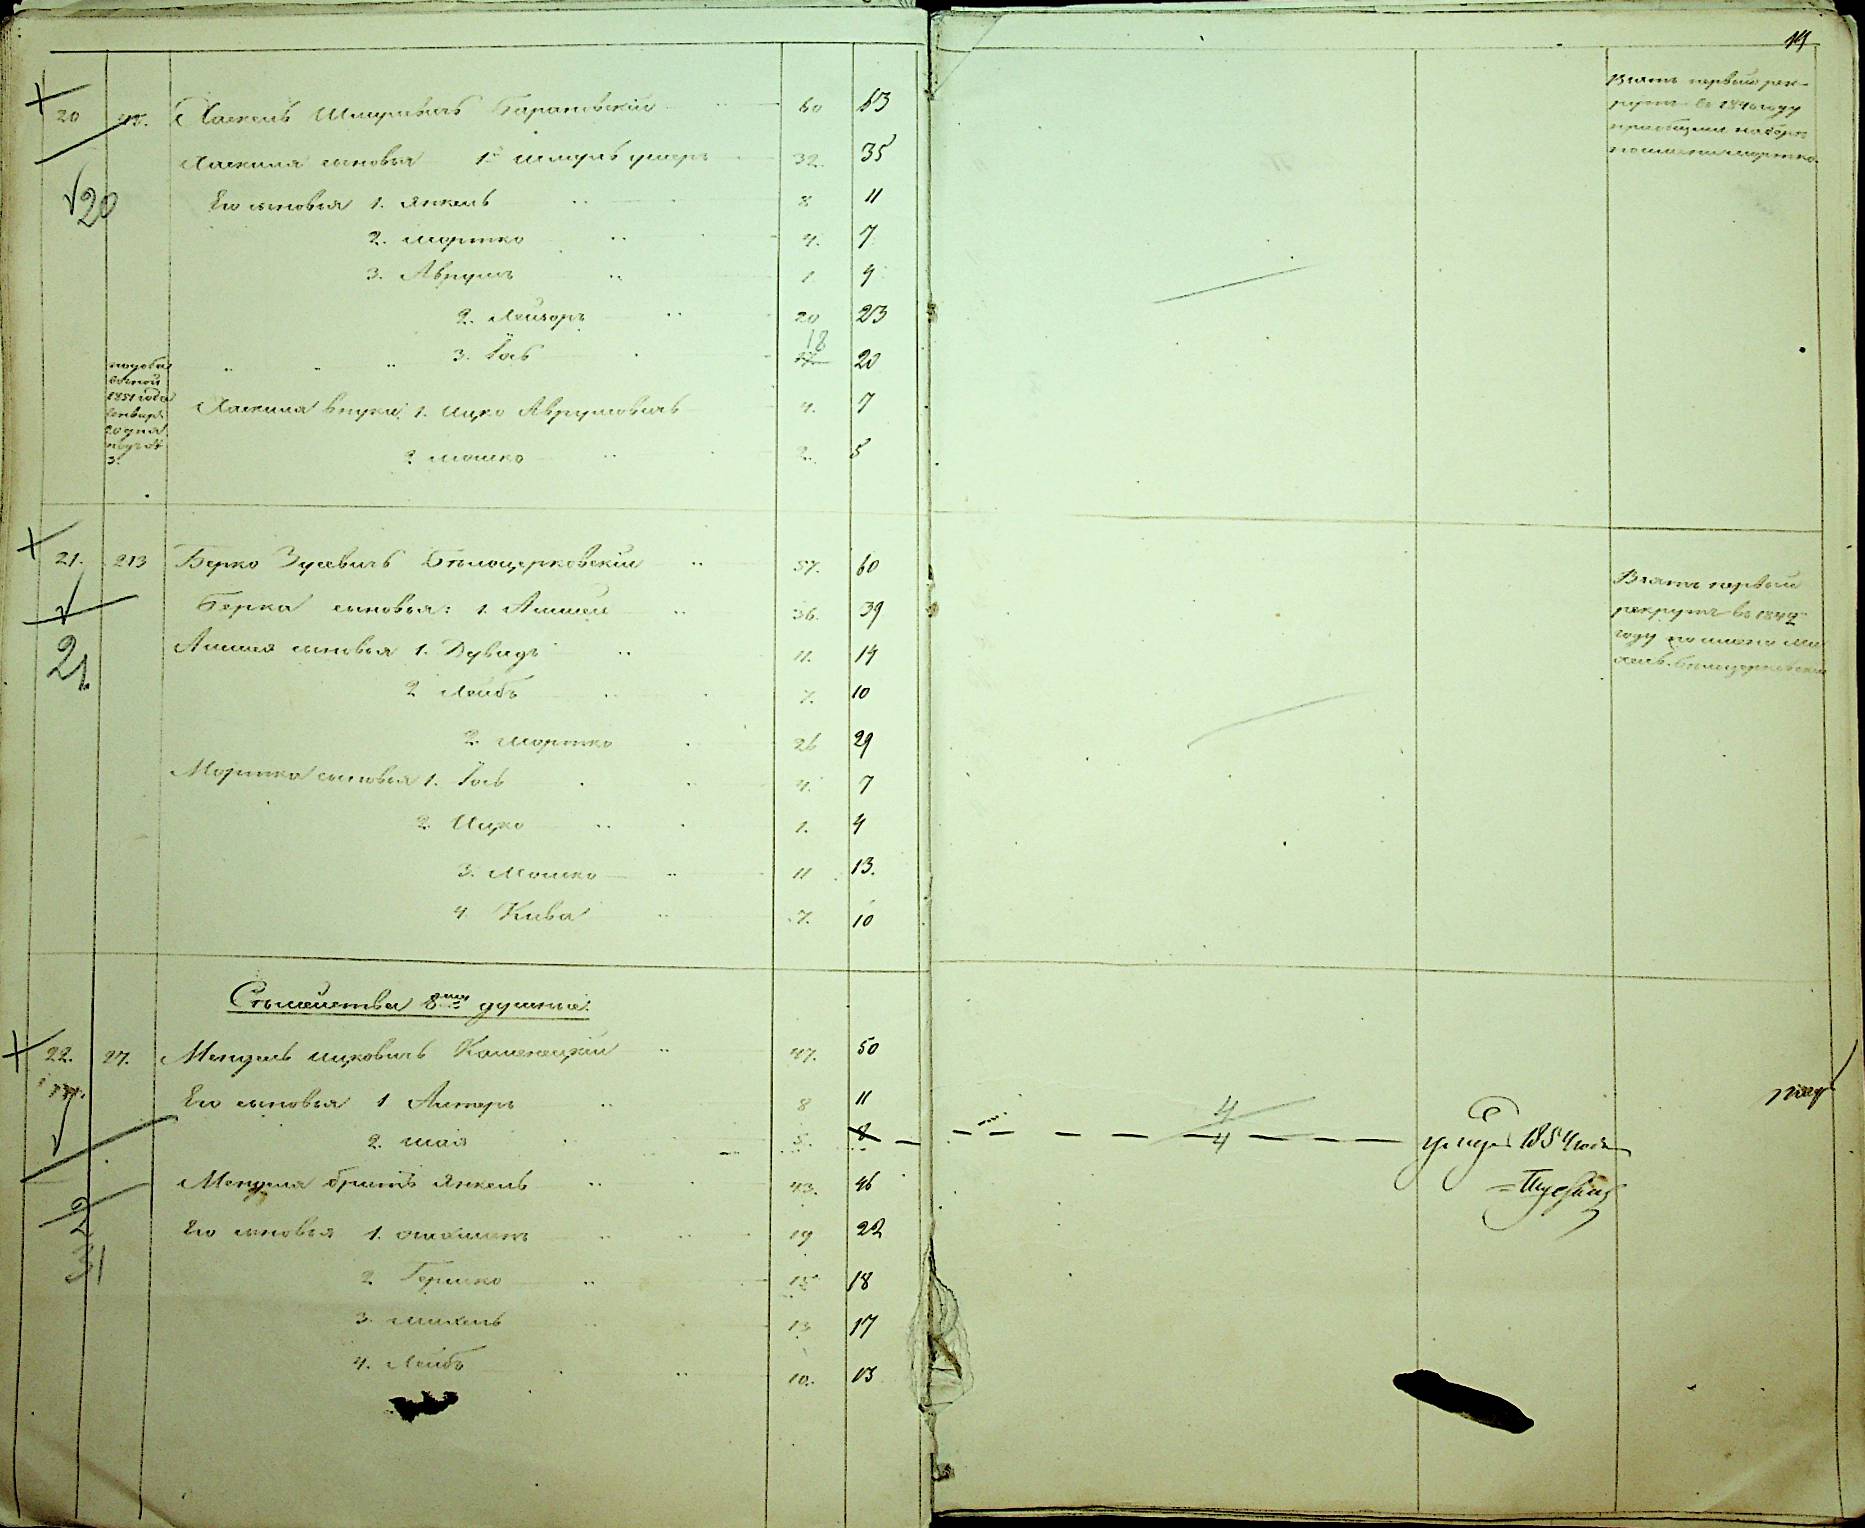 14
20 45. Хаскель Шмулевичъ Барановскій 60 63
Хаскеля сыновья 1й Шмуль умеръ 32. 35
20
Его сыновья 1. Янкель 8 11
2. Мортко 4. 7
3. Аврумъ 1. 4
2. Лейзоръ 20 23
3. Іось 18 20
1851 года
20 дня
3.
Хаскеля внуки: 1. Ицко Аврумовичъ 4. 7
2 Мошко 2. 5
Взятъ первый рек-
рутъ въ 1840 году
21. 213 Берко Зусевичъ Бѣлоцерковскій 57. 60
Берка сыновья: 1. Аншей 36. 39
21.
Аншея сыновья 1. Дувидъ 11. 14
2 Лейбъ 7. 10
2. Мортко 26 29
Мортка сыновья 1. Іось 4. 7
2. Ицко 1. 4
3. Мошко 11 13.
4. Кива 7. 10
Взятъ первый
рекрутъ въ 1842
году по имени Ми
хель Бѣлоцерковскій
Семейства 8ми душныя:
22. 27. Мендель Ицковичъ Каменецкій 47. 50
Его сыновья 1 Алтеръ 8 11
2. Шая 5. 8
4
4
1854 года
Менделя братъ Янкель 43. 46
2
Его сыновья 1. 19 22
31
2 Гершко 15 18
3. Михель 13 17
4. Лейбъ 10. 13